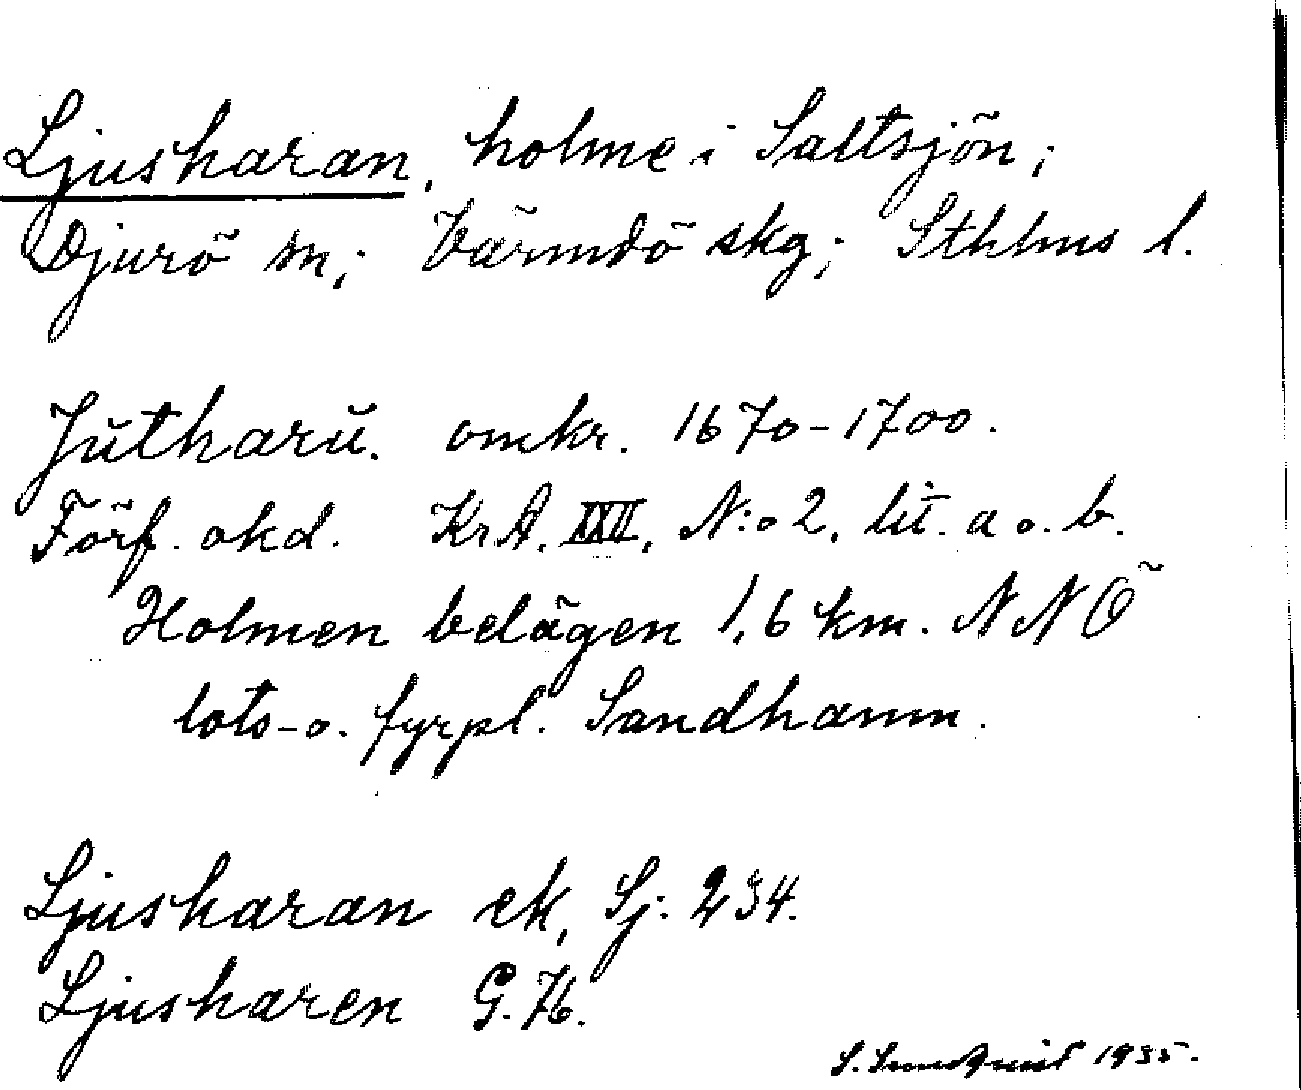 Ljusharan, holme i Saltsjön;
Djurö sn; Värmdö skg; Sthlms l.
Jutharŭ. omkr. 1670-1700.
Förf. okd. KrA. XXII, N:o 2, lit. a o. b.
Holmen belägen 1,6 km. NNÖ
lots- o. fyrpl. Sandhamn.
Ljusharan ek, Sj. 234.
Ljusharen G.76.
S. 1935.